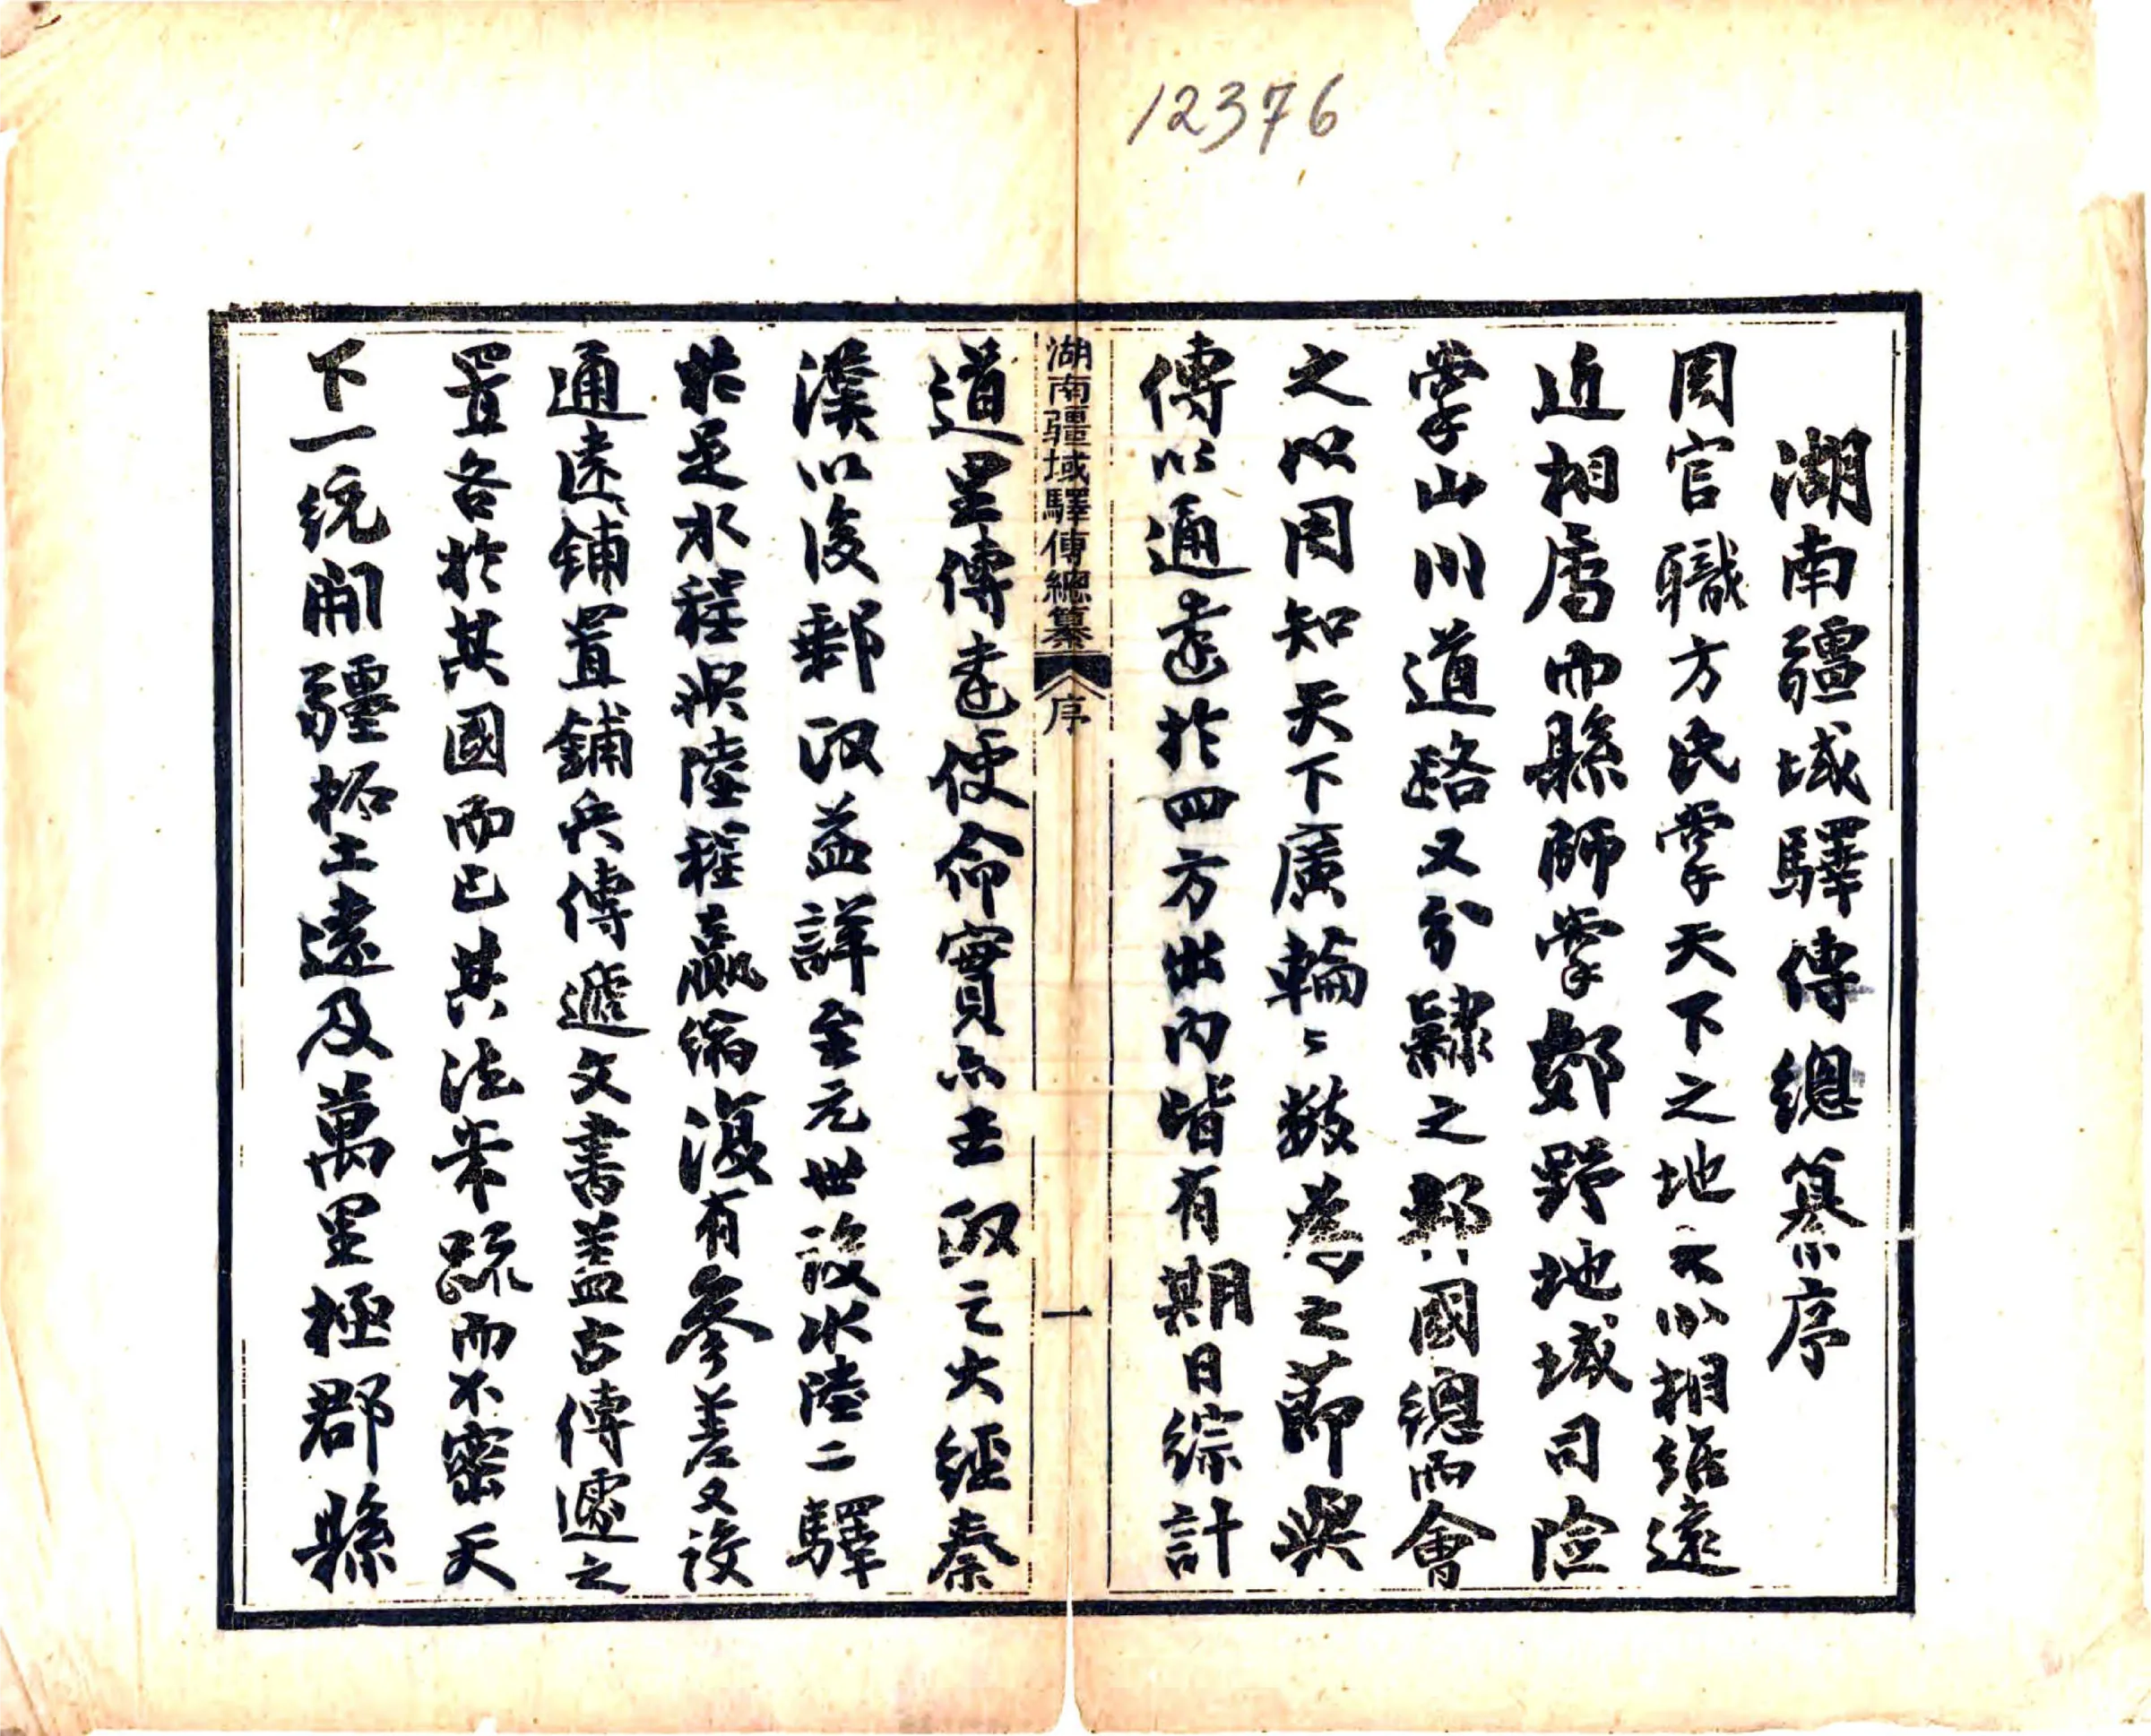 12376
湖南疆域驛傳總纂序
周官職方氏掌天下之地大小相維遠
近相屬而縣師掌郊野地域司險
掌山川道路又分隸之郡國總而會
之以周知天下廣輪之數為之節與
傳以通達於四方出內皆有期日綜計
湖南疆域驛傳總纂
序
一
道里傳達使命實亦王政之大經秦
漢以後郵政益詳至元世設水陸二驛
於是水程與陸程贏縮復有參差又設
通遠鋪置鋪兵傳遞文書蓋古傳遽之
置各於其國而已其法常疏而不密天
下一統開疆拓土遠及萬里極郡縣